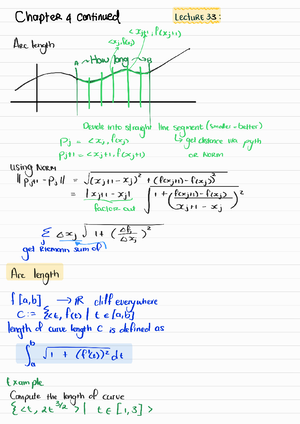 Chapter 4 continued
Lecture 33:
Arc length
<xj+1, f(xj+1)
<xj, f(xj)
A → How long → B
Devide into straight line segment (smaller = better)
Pj = <xj, f(xj)
↳ get distance via pyth
Pj+1 = <xj+1, f(xj+1)
or Norm
Using Norm
|| Pj+1 - Pj || = √(xj+1 - xj)² + (f(xj+1) - f(xj))²
= |xj+1 - xj| √1 + (f(xj+1) - f(xj) / xj+1 - xj)²
factor out
Σ Δxj √1 + (Δfj / Δxj)²
get Riemann sum of
Arc length
f [a,b] → ℝ diff everywhere
C := {<t, f(t) | t ∈ [a,b]
length of curve length C is defined as
∫ₐᵇ √1 + (f'(t))² dt
Example
Compute the length of curve
{<t, 2t^3/2 >| t ∈ [1,3] >